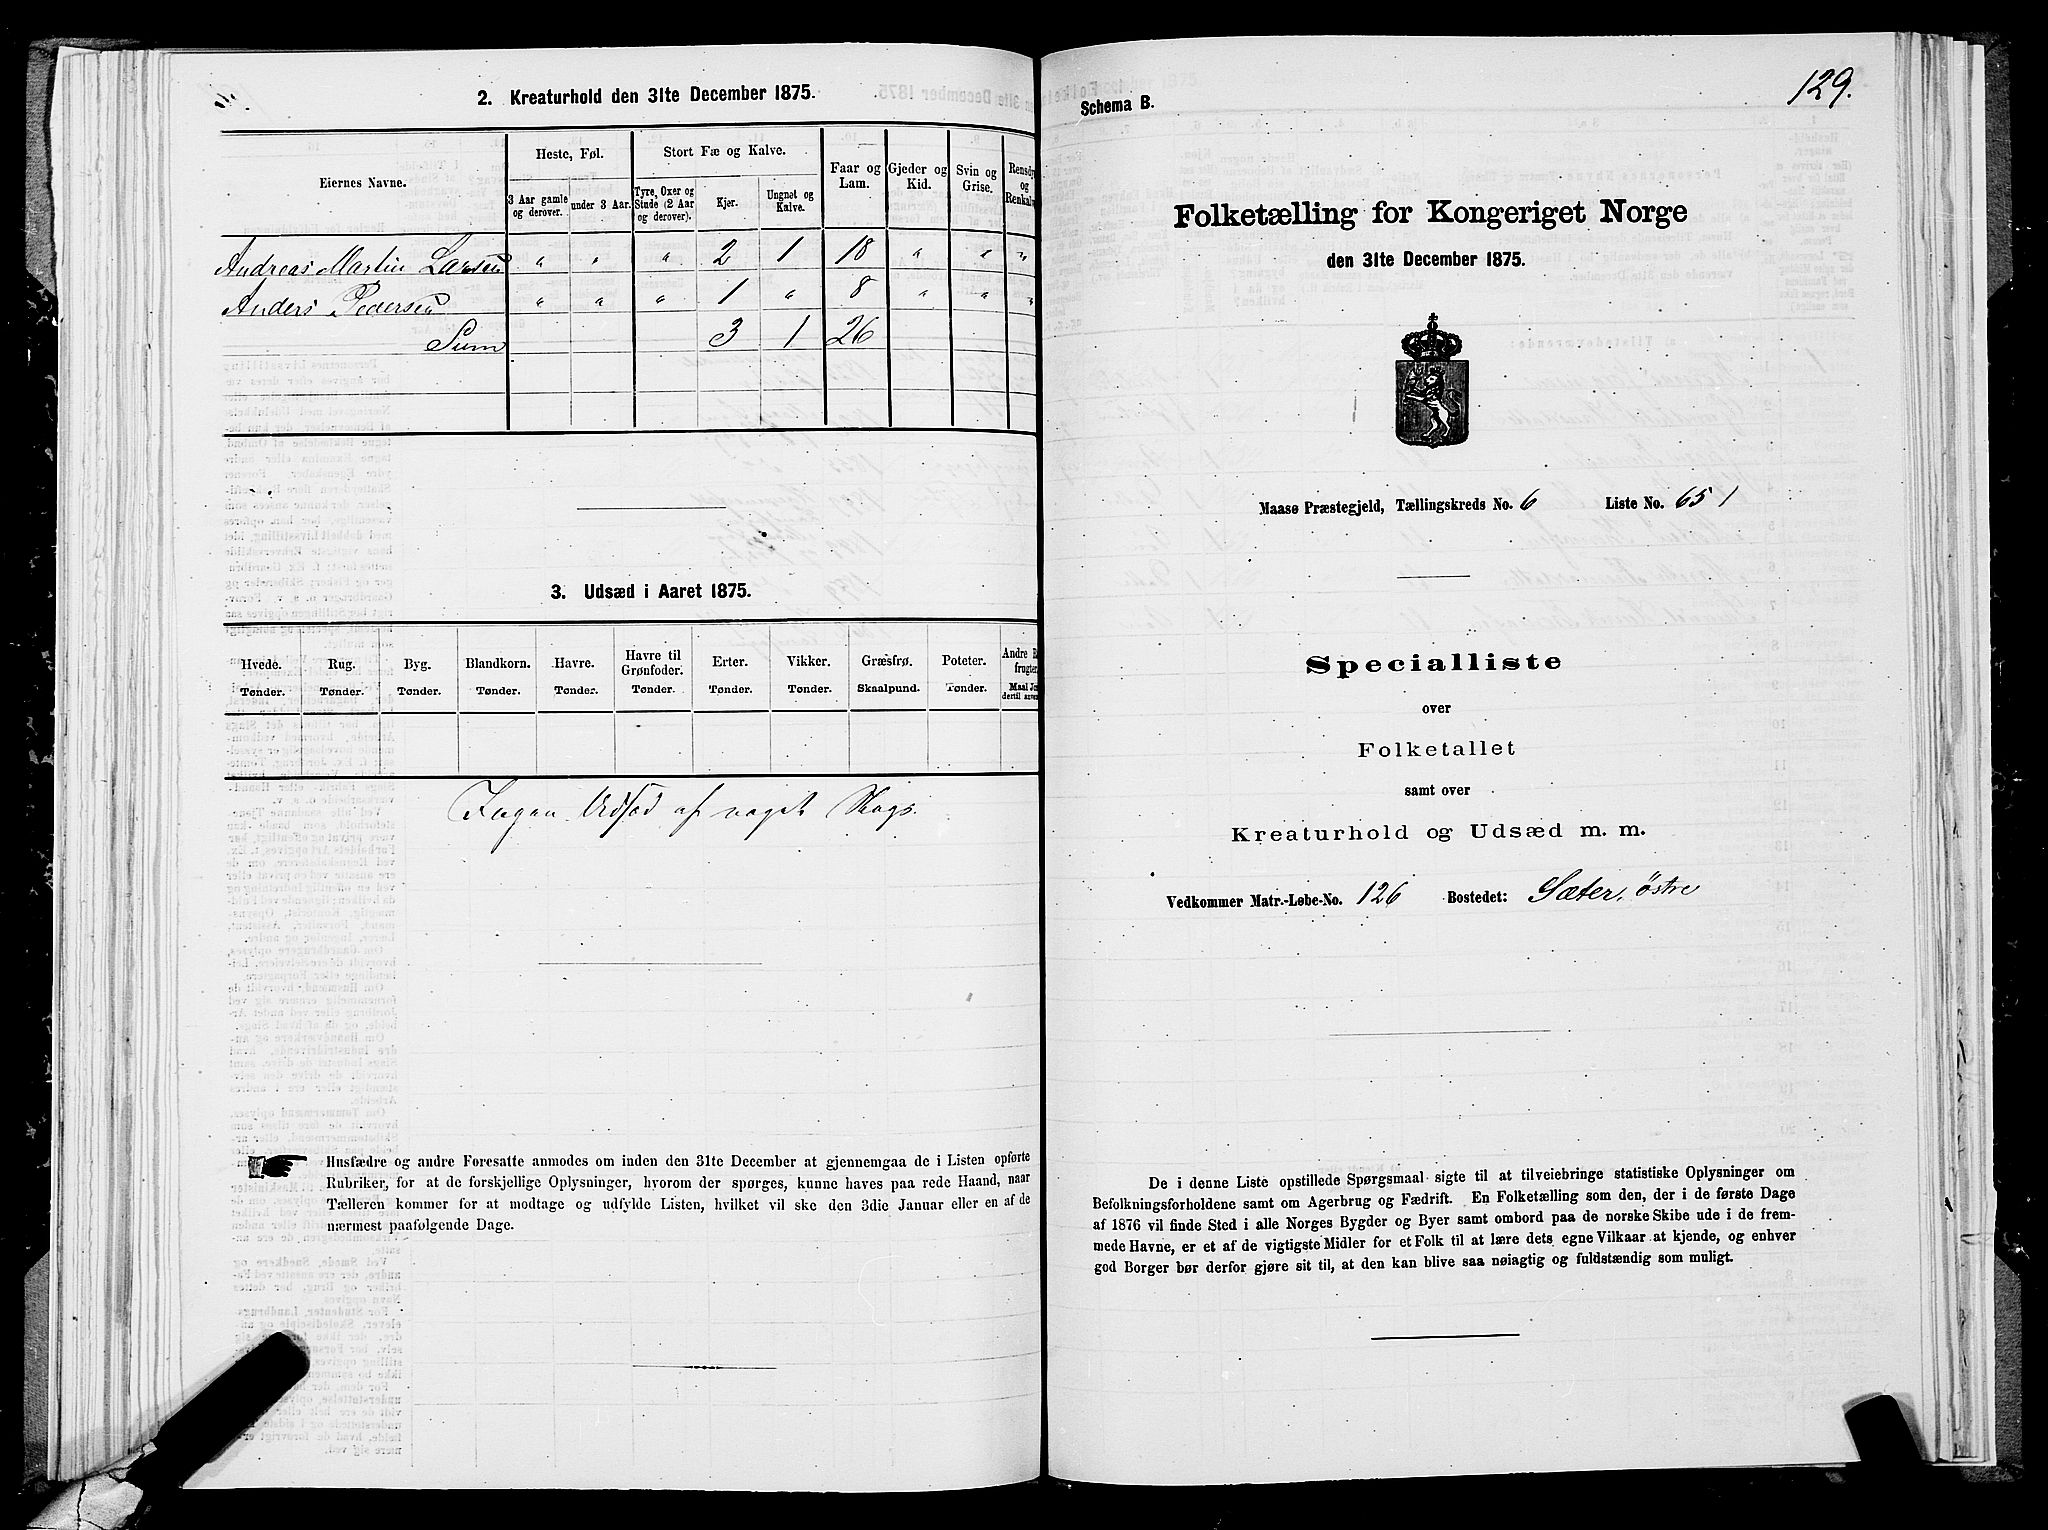 2. Kreaturhold den 31te December 1875.
Eiernes Navne.
Heste, Føl.
Stort Fæ og Kalve.
Faar og Lam.
Gjeder og Kid.
Svin og Grise.
Rensdyr og Renkalv
3 Aar gamle og derover.
under 3 Aar.
Tyre, Oxer og Stude (2 Aar og derover).
Kjør.
Ungnøt og Kalve.
Andreas Martin Larsen " " " 2 1 18 " " "
Anders Pedersen " " " 1 " 8 " " "
Sum 3 1 26
3. Udsæd i Aaret 1875.
Hvede. Rug. Byg. Blandkorn. Havre. Havre til Grønfoder. Erter. Vikker. Græsfrø. Poteter. Andre R frugter
Tønder. Tønder. Tønder. Tønder. Tønder. Tønder. Tønder. Tønder. Skaalpund. Tønder. Maal Jo dertil anven
Ingen Udsæd af noget Slags.
Husfædre og andre Foresatte anmodes om inden den 31te December at gjennemgaa de i Listen opførte
Rubriker, for at de forskjellige Oplysninger, hvorom der spørges, kunne haves paa rede Haand, naar
Tælleren kommer for at modtage og udfylde Listen, hvilket vil ske den 3die Januar eller en af de
nærmest paafølgende Dage.
129.
Schema B.
Folketælling for Kongeriget Norge
den 31te December 1875.
Maasø Præstegjeld, Tællingskreds No. 6 Liste No. 651
Specialliste
over
Folketallet
samt over
Kreaturhold og Udsæd m. m.
Vedkommer Matr.-Løbe-No. 126 Bostedet: Sæter, østre
De i denne Liste opstillede Spørgsmaal sigte til at tilveiebringe statistiske Oplysninger om
Befolkningsforholdene samt om Agerbrug og Fædrift. En Folketælling som den, der i de første Dage
af 1876 vil finde Sted i alle Norges Bygder og Byer samt ombord paa de norske Skibe ude i de frem-
mede Havne, er et af de vigtigste Midler for et Folk til at lære dets egne Vilkaar at kjende, og enhver
god Borger bør derfor gjøre sit til, at den kan blive saa nøiagtig og fuldstændig som muligt.